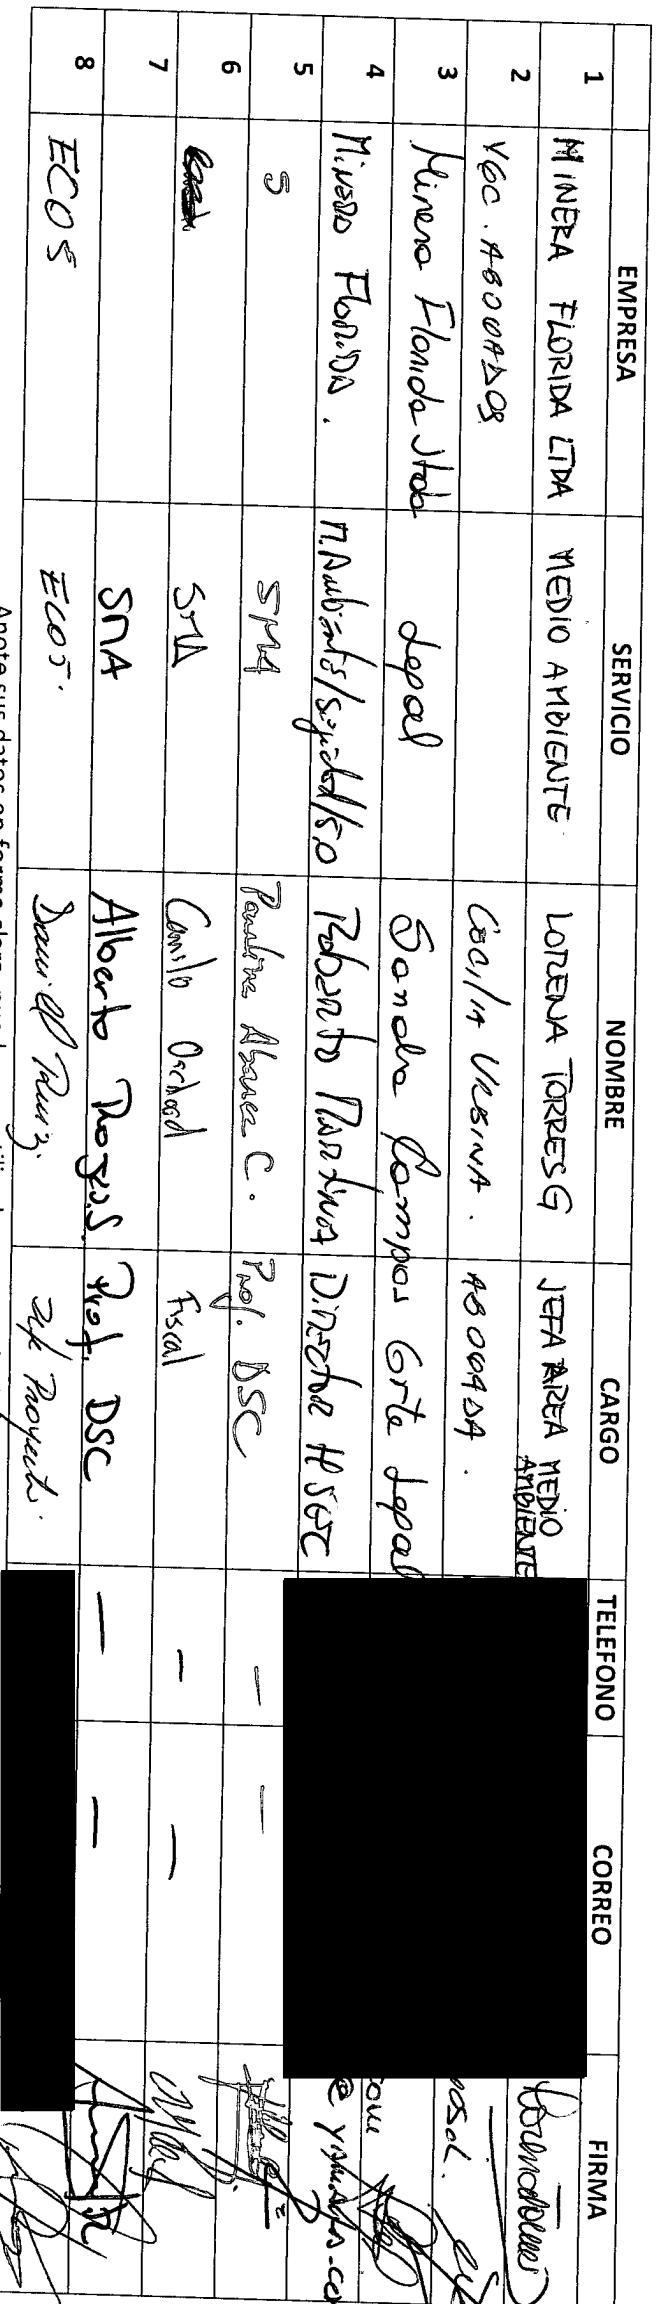 EMPRESA SERVICIO NOMBRE CARGO TELEFONO CORREO FIRMA
1 MINERA FLORIDA LTDA MEDIO AMBIENTE LORENA TORRES G JEFA AREA MEDIO AMBIENTE
2 YGC. ABOGADOS CECILIA URBINA. ABOGADA.
3 Minera Florida Ltda Legal Sandra Campos Grte Legal
4 Minera Florida. M. Ambiente/Seguridad/S.O Roberto Martinez Director HSEC
5 S SMA C. Prof. DSC — —
6 SMA Camilo Orchard Fiscal — —
7 SMA Alberto Rojas S. Prof. DSC — —
8 ECOS ECOS. Daniel Ruiz. Jefe Proyecto.